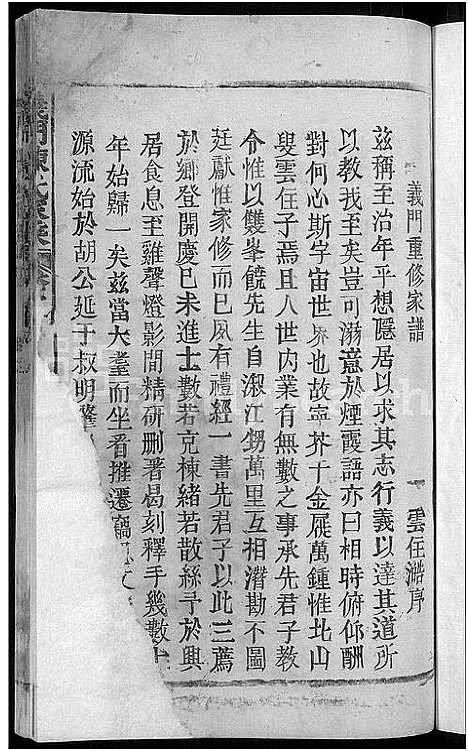 義門重修家譜　雲住澔序
茲稱至治年平想隱居以求其志行義以達其道所
以教我至矣豈可溺意於煙霞語亦曰相時俯仰酬
對何心斯宇宙世界也故寧芥千金屣萬鍾惟北山
叟雲住子焉且人世內業有無數之事承先君子教
令惟以雙峯饒先生自溆江甥萬里互相潛勘不圖
廷獻惟家修而已夙有禮經一書先君子以此三薦
於鄉登開慶已未進士數若充棟緒若散絲予於興
居食息至雞聲燈影間精研刪著曷刻釋手幾數十
年始歸一矣茲當大耋而坐看推遷竊
源流始於胡公延于叔明肇